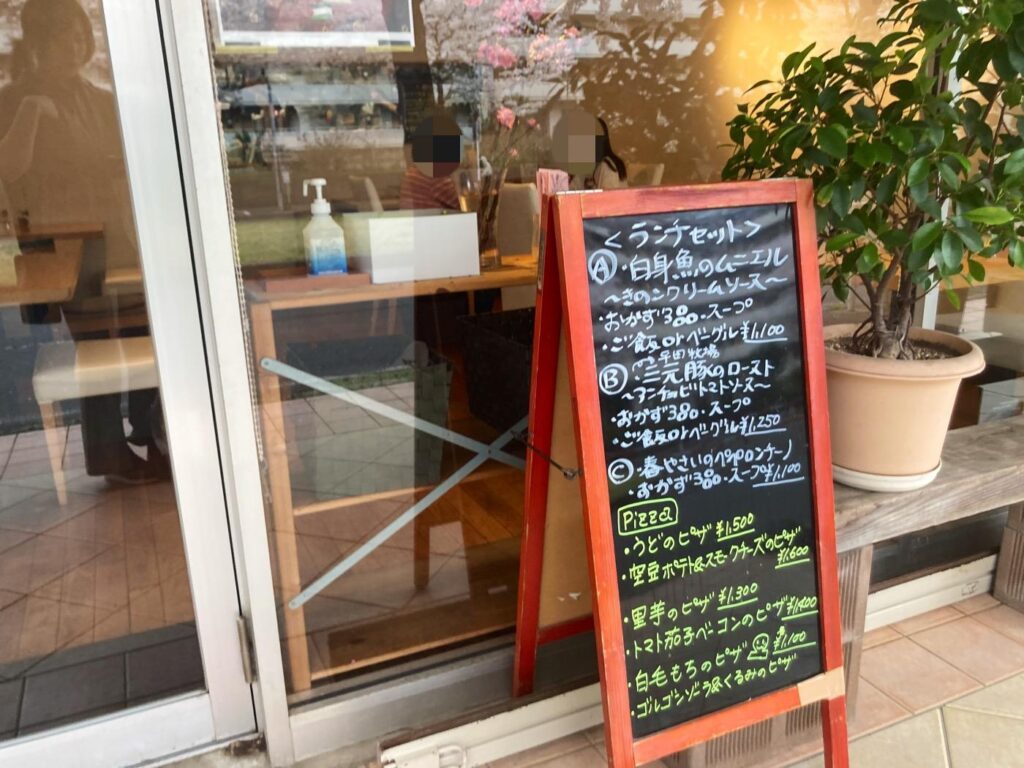 ＜ランチセット＞
Ⓐ・白身魚のムニエル
～きのこクリームソース～
・おかず3品・スープ
・ご飯orベーグル ¥1,100
平田牧場
Ⓑ・三元豚のロースト
～アンチョビトマトソース～
・おかず3品・スープ
・ご飯orベーグル ¥1,250
Ⓒ・春やさいのペペロンチーノ
・おかず3品・スープ ¥1,100
Pizza
・うどのピザ ¥1,500
・空豆ポテト&スモークチーズのピザ
¥1,600
・里芋のピザ ¥1,300
・トマト茄子ベーコンのピザ ¥1,400
・白毛もちのピザ ¥1,100
・ゴルゴンゾーラ&くるみのピザ